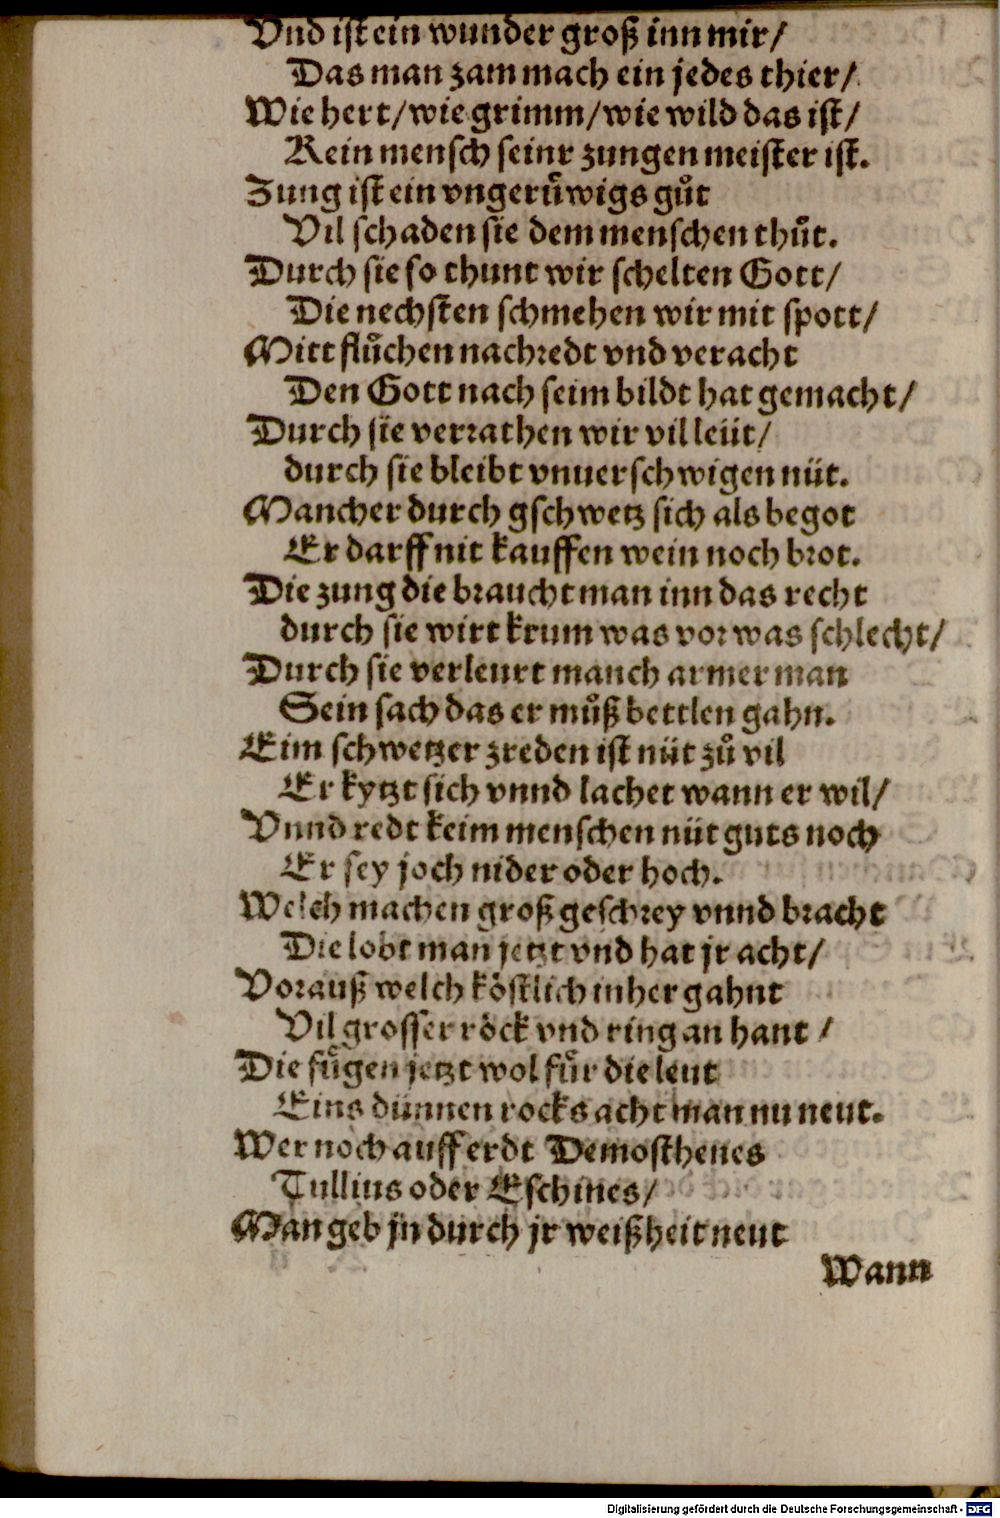 Vnd ist ein wunder groß inn mir/
Das man zam mach ein jedes thier/
Wie hert/wie grimm/wie wild das ist/
Kein mensch seinr zungen meister ist.
Zung ist ein vngerůwigs gůt
Vil schaden sie dem menschen thůt.
Durch sie so thunt wir schelten Gott/
Die nechsten schmehen wir mit spott/
Mitt flůchen nachredt vnd veracht
Den Gott nach seim bildt hat gemacht/
Durch sie verrathen wir vil leüt/
durch sie bleibt vnuerschwigen nüt.
Mancher durch gschwetz sich als begot
Er darff nit kauffen wein noch brot.
Die zung die braucht man inn das recht
durch sie wirt krum was vor was schlecht/
Durch sie verleurt manch armer man
Sein sach das er můß bettlen gahn.
Eim schwetzer zreden ist nüt zů vil
Er kytzt sich vnnd lachet wann er wil/
Vnnd redt keim menschen nüt guts noch
Er sey joch nider oder hoch.
Welch machen groß geschrey vnnd bracht
Die lobt man jetzt vnd hat jr acht/
Vorauß welch köstlich inher gahnt
Vil grosser röck vnd ring an hant /
Die fůgen jetzt wol fůr die leut
Eins dünnen rocks acht man nu neut.
Wer noch auff erdt Demosthenes
Tullius oder Eschines/
Man geb jn durch jr weißheit neut
Wann
Digitalisierung gefördert durch die Deutsche Forschungsgemeinschaft - DFG